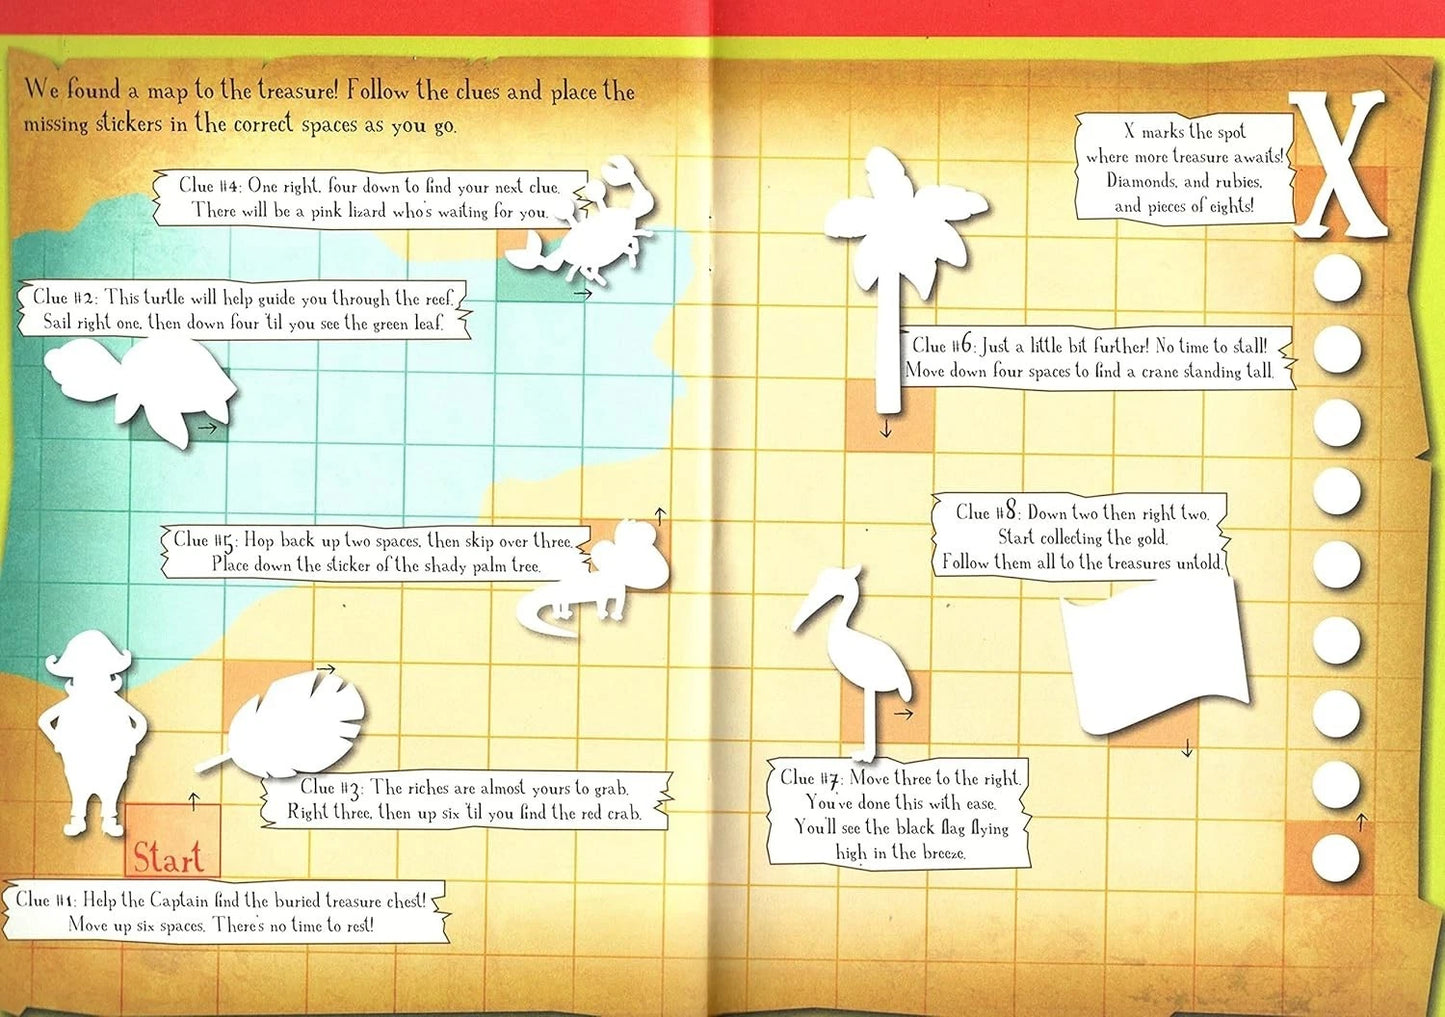 We found a map to the treasure! Follow the clues and place the
missing stickers in the correct spaces as you go.
X marks the spot
where more treasure awaits!
Diamonds, and rubies,
and pieces of eights!
X
Clue #4: One right, four down to find your next clue.
There will be a pink lizard who's waiting for you.
Clue #2: This turtle will help guide you through the reef.
Sail right one, then down four 'til you see the green leaf.
Clue #6: Just a little bit further! No time to stall!
Move down four spaces to find a crane standing tall.
Clue #5: Hop back up two spaces, then skip over three.
Place down the sticker of the shady palm tree.
Clue #8: Down two then right two.
Start collecting the gold.
Follow them all to the treasures untold.
Clue #3: The riches are almost yours to grab.
Right three, then up six 'til you find the red crab.
Clue #7: Move three to the right.
You've done this with ease.
You'll see the black flag flying
high in the breeze.
Start
Clue #1: Help the Captain find the buried treasure chest!
Move up six spaces. There's no time to rest!